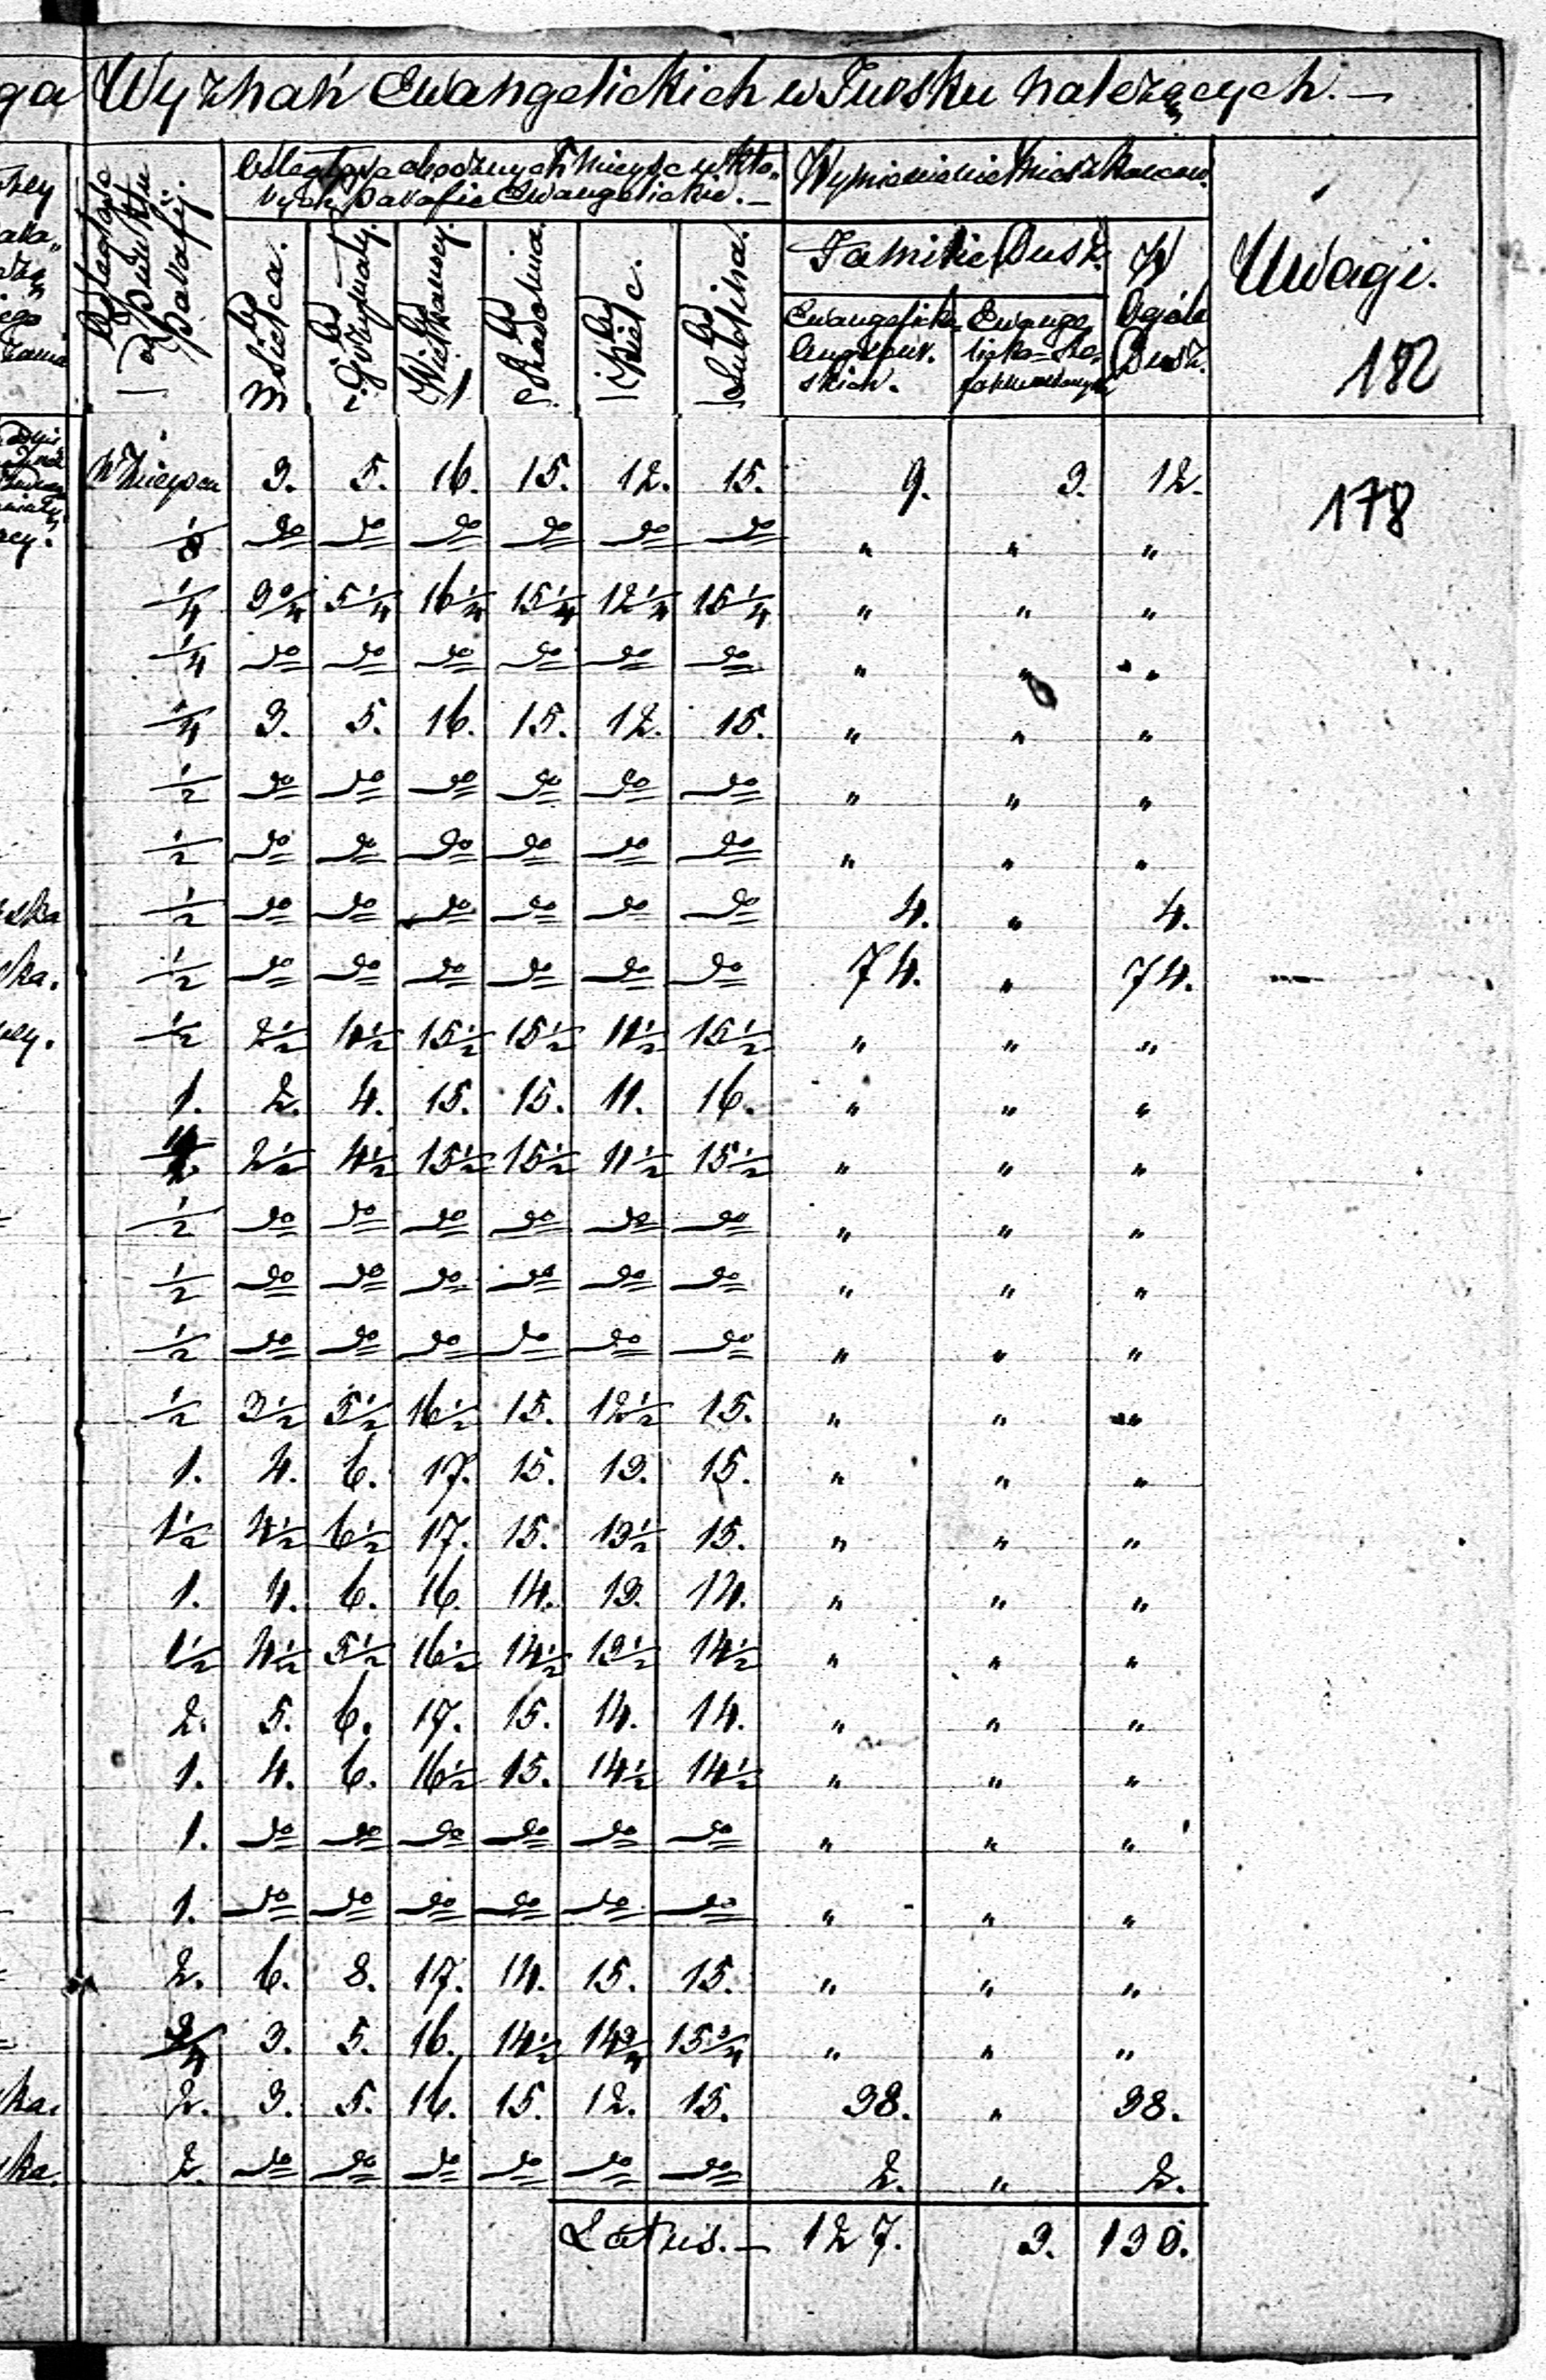 ga Wyznań Ewangelickich w Tursku należących. —
Odległość od Punktu Parafij.
Odległość obocznych miejsc w któ„
rych parafie Ewangelickie. —
Wymienienie Mieszkańców.
Uwagi.
Familie Dusz.
W Ogóle Dusz.
Ewangelicko Augsbur. skich.
Ewange licko=Re„ formowanych
182
W miejscu 3. 5. 16. 15. 12. 15. 9. 3. 12.
178
1/8 do do do do do do " " "
1/4 3 1/4 5 1/4 16 1/4 15 1/4 12 1/4 15 1/4 " " "
1/4 do do do do do do " " "
1/4 3. 5. 16. 15. 12. 15. " " "
1/2 do do do do do do " " "
1/2 do do do do do do " " "
ska 1/2 do do do do do do 4. " 4.
ka. 1/2 do do do do do do 74. " 74.
1/2 2 1/2 4 1/2 15 1/2 15 1/2 11 1/2 15 1/2 " " "
1. 2. 4. 15. 15. 11. 16. " " "
2 1/2 4 1/2 15 1/2 15 1/2 11 1/2 15 1/2 " " "
1/2 do do do do do do " " "
1/2 do do do do do do " " "
1/2 do do do do do do " " "
1/2 3 1/2 5 1/2 16 1/2 15. 12 1/2 15. " " "
1. 4. 6. 17. 15. 13. 15. " " "
1 1/2 4 1/2 6 1/2 17. 15. 13 1/2 15. " " "
1. 4. 6. 16. 14. 13. 14. " " "
1 1/2 4 1/2 5 1/2 16 1/2 14 1/2 13 1/2 14 1/2 " " "
2. 5. 6. 17. 15. 14. 14. " " "
1. 4. 6. 16 1/2 15. 14 1/2 14 1/2 " " "
1. do do do do do do " " "
1. do do do do do do " " "
2. 6. 8. 17. 14. 15. 15. " " "
3/4 3. 5. 16. 14 1/2 14 3/4 15 3/4 " " "
ka. 2. 3. 5. 16. 15. 12. 15. 38. " 38.
ka. 2. do do do do do do 2. " 2.
Latus. — 127. 3. 130.